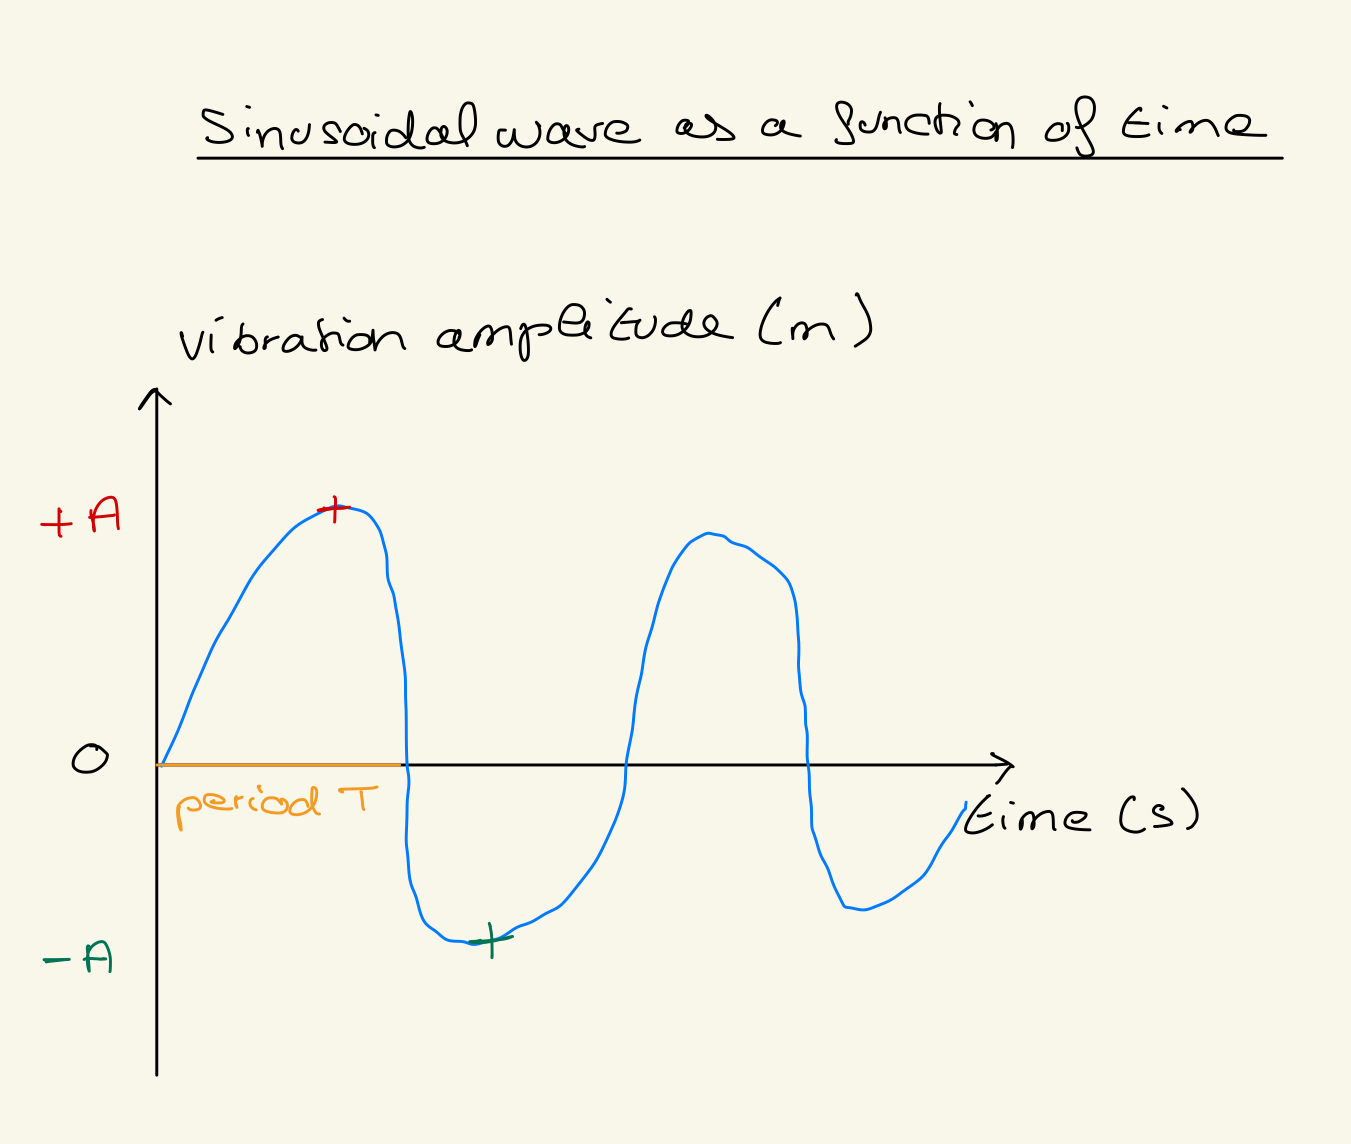 Sinusoidal wave as a function of time
vibration amplitude (m)
+A
0
period T
time (s)
-A